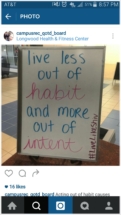 AT&T
8:57 PM
PHOTO
campusrec_qotd_board
Longwood Health & Fitness Center
live less
out of
habit
and more
out of
intent
16 likes
campusrec_qotd_board Acting out of habit causes